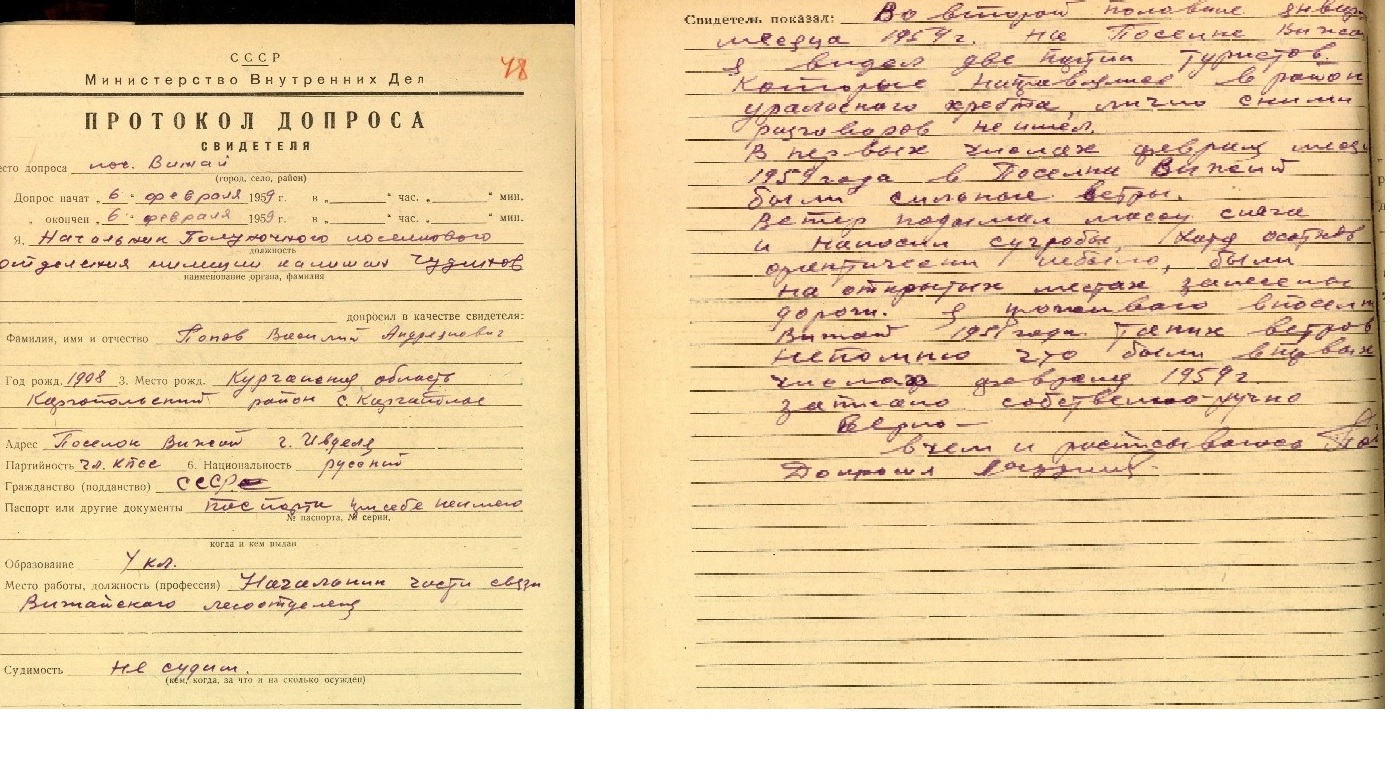 СССР
48
Министерство Внутренних Дел
ПРОТОКОЛ ДОПРОСА
СВИДЕТЕЛЯ
есто допроса пос. Вижай
(город, село, район)
Допрос начат „ 6 " февраля 1959 г. в „ " час. „ " мин.
„ окончен „ 6 " февраля 1959 г. в „ " час. „ " мин.
Я, Начальник Полуночного поселкового
должность
отделения милиции капитан Чудинов
наименование органа, фамилия
допросил в качестве свидетеля:
Фамилия, имя и отчество Попов Василий Андреянович
Год рожд. 1908 3. Место рожд. Курганская область
Каргопольский район с.
Адрес Поселок Вижай г. Ивделя
Партийность чл. КПСС 6. Национальность русский
Гражданство (подданство) СССР
Паспорт или другие документы паспорта при себе неимею
№ паспорта, № серии,
когда и кем выдан
Образование 4 кл.
Место работы, должность (профессия) Начальник части связи
Вижайского лесоотделения
Судимость не судим.
(кем, когда, за что и на сколько осужден)
Свидетель показал: Во второй половине январ
месяца 1959 г. на Поселке Вижа
я видел две партии туристов
которые направлялись в район
уральского хребта, лично сними
разговоров неимел.
В первых числах февраля меся
1959 года в Поселки Вижай
были сильные ветры.
Ветер подымал массу снега
и наносил сугробы, хотя осатков
практически небыло, были
на открытых местах занесены
дороги. Я проживаю впоселк
Вижай 1951 года таких ветров
непомню что были впервых
числах февраля 1959 г.
записано собственно-ручно
Верно —
вчем и расписываюсь По
Допросил